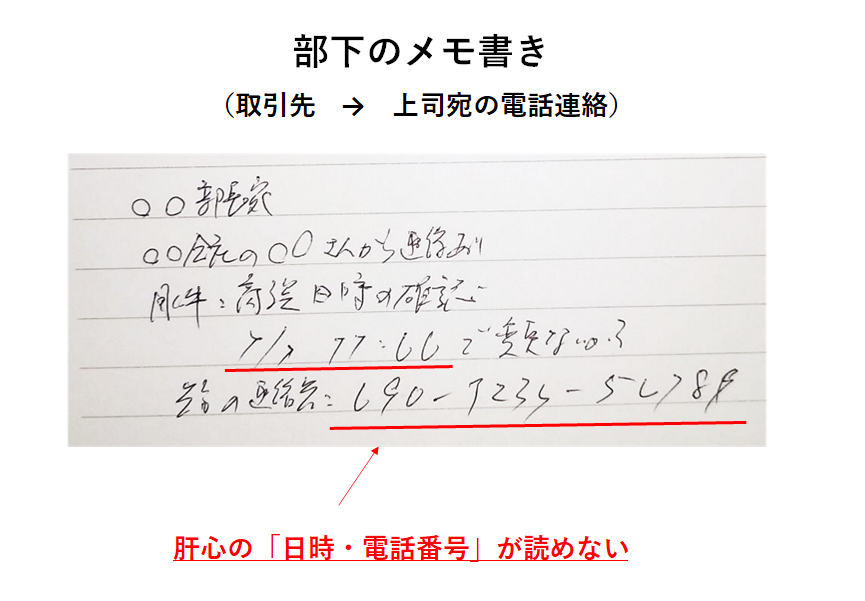 部下のメモ書き
(取引先 → 上司宛の電話連絡)
○○部長宛
○○会社の○○さんから連絡あり
用件:商談日時の確認
で変更ないか?
先方の連絡先:
肝心の「日時・電話番号」が読めない